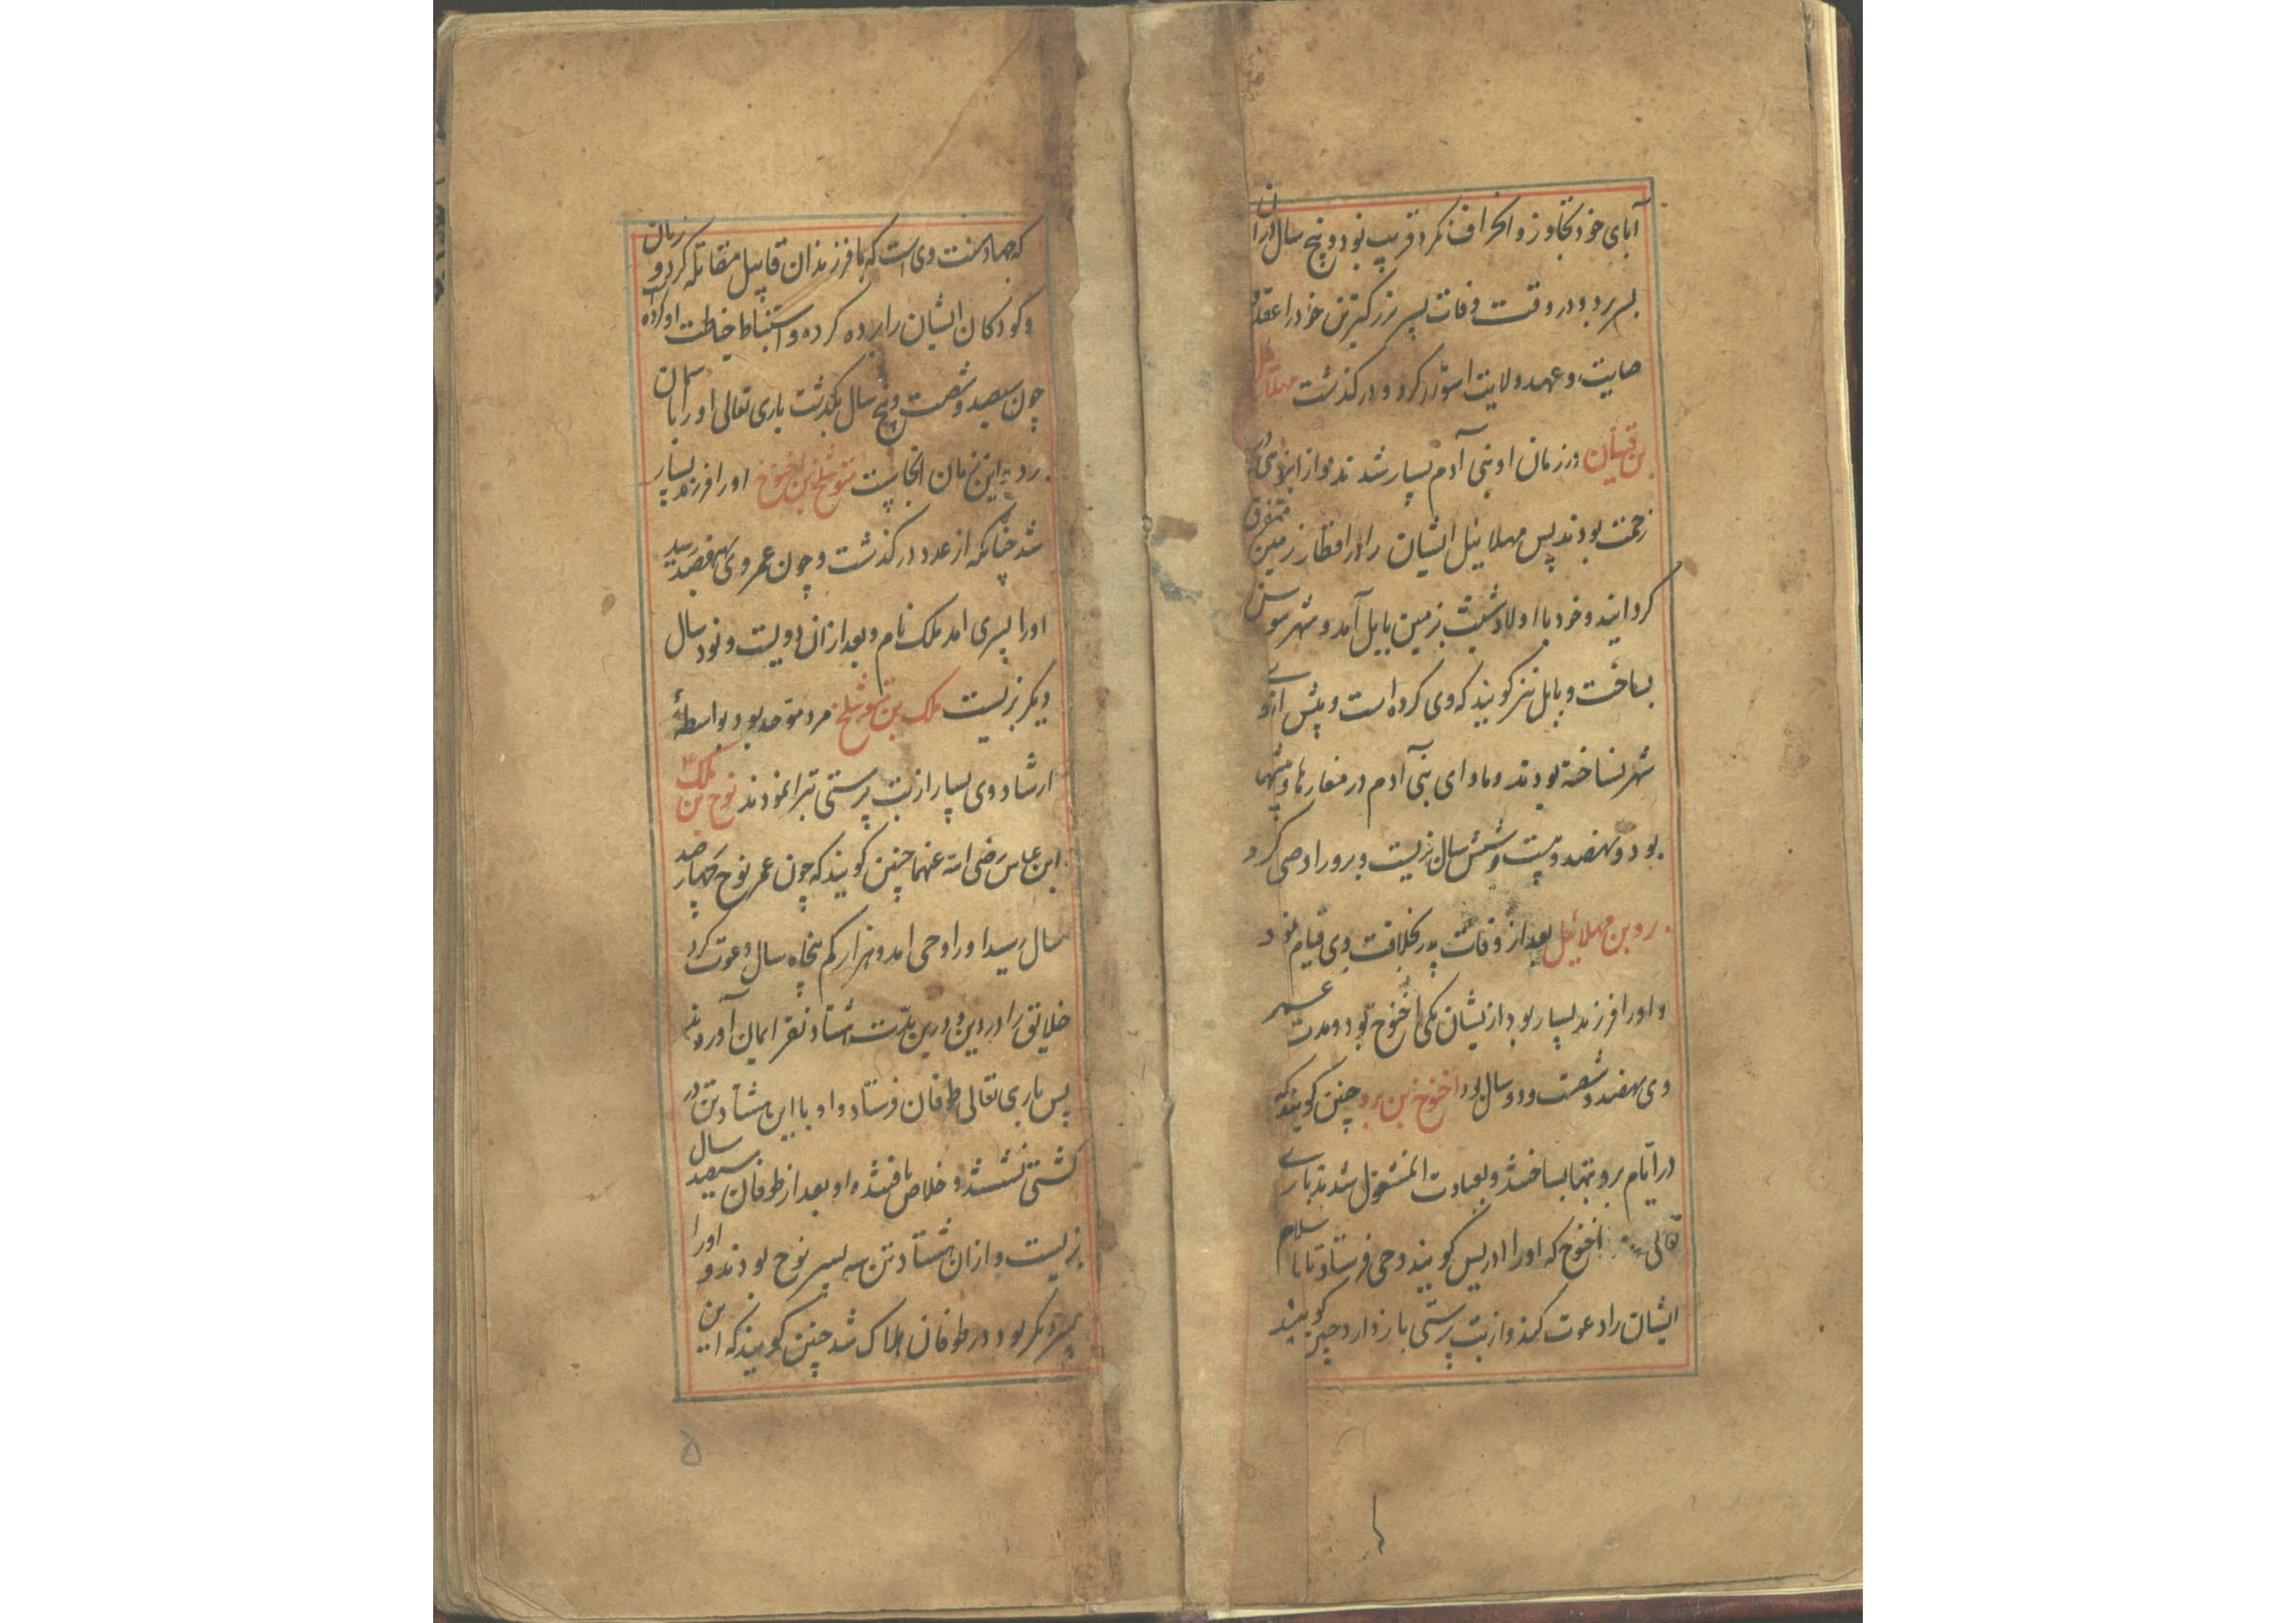 آبای خود تجاوز و انحراف نکرد قریب نود و پنج سال در آن
بسر برد و در وقت وفات پسر بزرکترین خود را عقد
صایت و عهد ولایت استوار کرد و در کذشت مهلائیل
بن قینان در زمان او بنی آدم بسیار شدند و از انبوهی در
زحمت بودند پس مهلائیل ایشان را در اقطار زمین متفرق
کردانید و خود با اولاد شیث بزمین بابل آمد و شهر سوس
بساخت و بابل نیز کویند که وی کرده است و پیش از وی
شهر نساخته بودند و ماوای بنی آدم در مغارها و بیشها
بود و نهصد و بیست و شش سال بزیست و برد را وصی کرد
برد بن مهلائیل بعد از وفات پدر بخلافت وی قیام نمود
و او را فرزند بسیار بود از یشان یکی اخنوخ بود و مدت عمر
وی نهصد و شصت و دو سال بود اخنوخ بن برد چنین کویند که
در ایام برد بتها بساختند و بعبادت آن مشغول شدند باری
تعالی اخنوخ که او را ادریس کویند وحی فرستاد تا باسلام
ایشان را دعوت کند و از بت پرستی باز دارد چنین کویند
که جهاد سنت وی است که با فرزندان قابیل مقاتله کرد و زنان
و کودکان ایشان را برده کرده و استنباط خیاطت او کرده
چون سیصد و شصت و پنج سال بکذشت باری تعالی او را بآسمان
برد و این زمان انجاست متوشلخ بن اخنوخ او را فرزند بسیار
شد چنانکه از عدد در کذشت و چون عمر وی بهفصد رسید
او را پسری امد ملک نام و بعد از ان دویست و نود سال
دیکر بزیست ملک بن متوشلخ مرد موحد بود و بواسطهٔ
ارشاد وی بسیار از بت پرستی تبرا نمودند نوح بن ملک
ابن عباس رضی الله عنهما چنین کویند که چون عمر نوح چهار صد
سال رسید او را وحی امد و هزار کم پنجاه سال دعوت کرد
خلایق را در دین و درین مدت هشتاد نفر ایمان آوردند
پس باری تعالی طوفان فرستاد و او با این هشتاد تن در
کشتی نشستند و خلاص یافتند و او بعد از طوفان سیصد سال
بزیست و از ان هشتاد تن سه پسر نوح بودند و او را
پسر دیکر بود در طوفان هلاک شد چنین کویند که این
۵